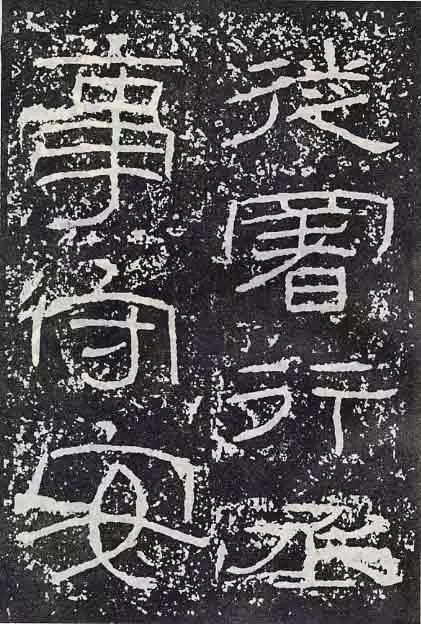 徙署行丞
事守安